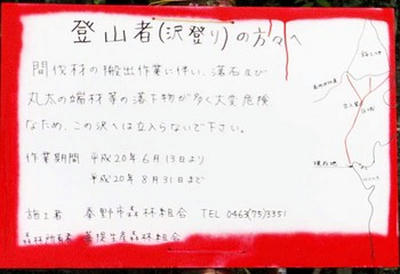 登山者(沢登り)の方々へ
間伐材の搬出作業に伴い、落石及び
丸太の端材等の落下物が多く大変危険
なため、この沢へは立入らないで下さい。
作業期間 平成20年6月13日より
平成20年8月31日まで
施工者 秦野市森林組合 TEL 0463(75)3351
森林所有者 菩提生産森林組合
現在地